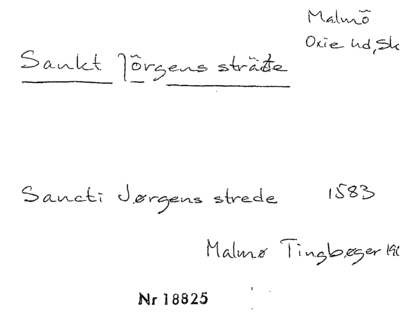 Malmö
Oxie hd, Sk
Sankt Jörgens sträte
Sancti Jørgens strede 1583
Malmø Tingbøger
Nr 18825